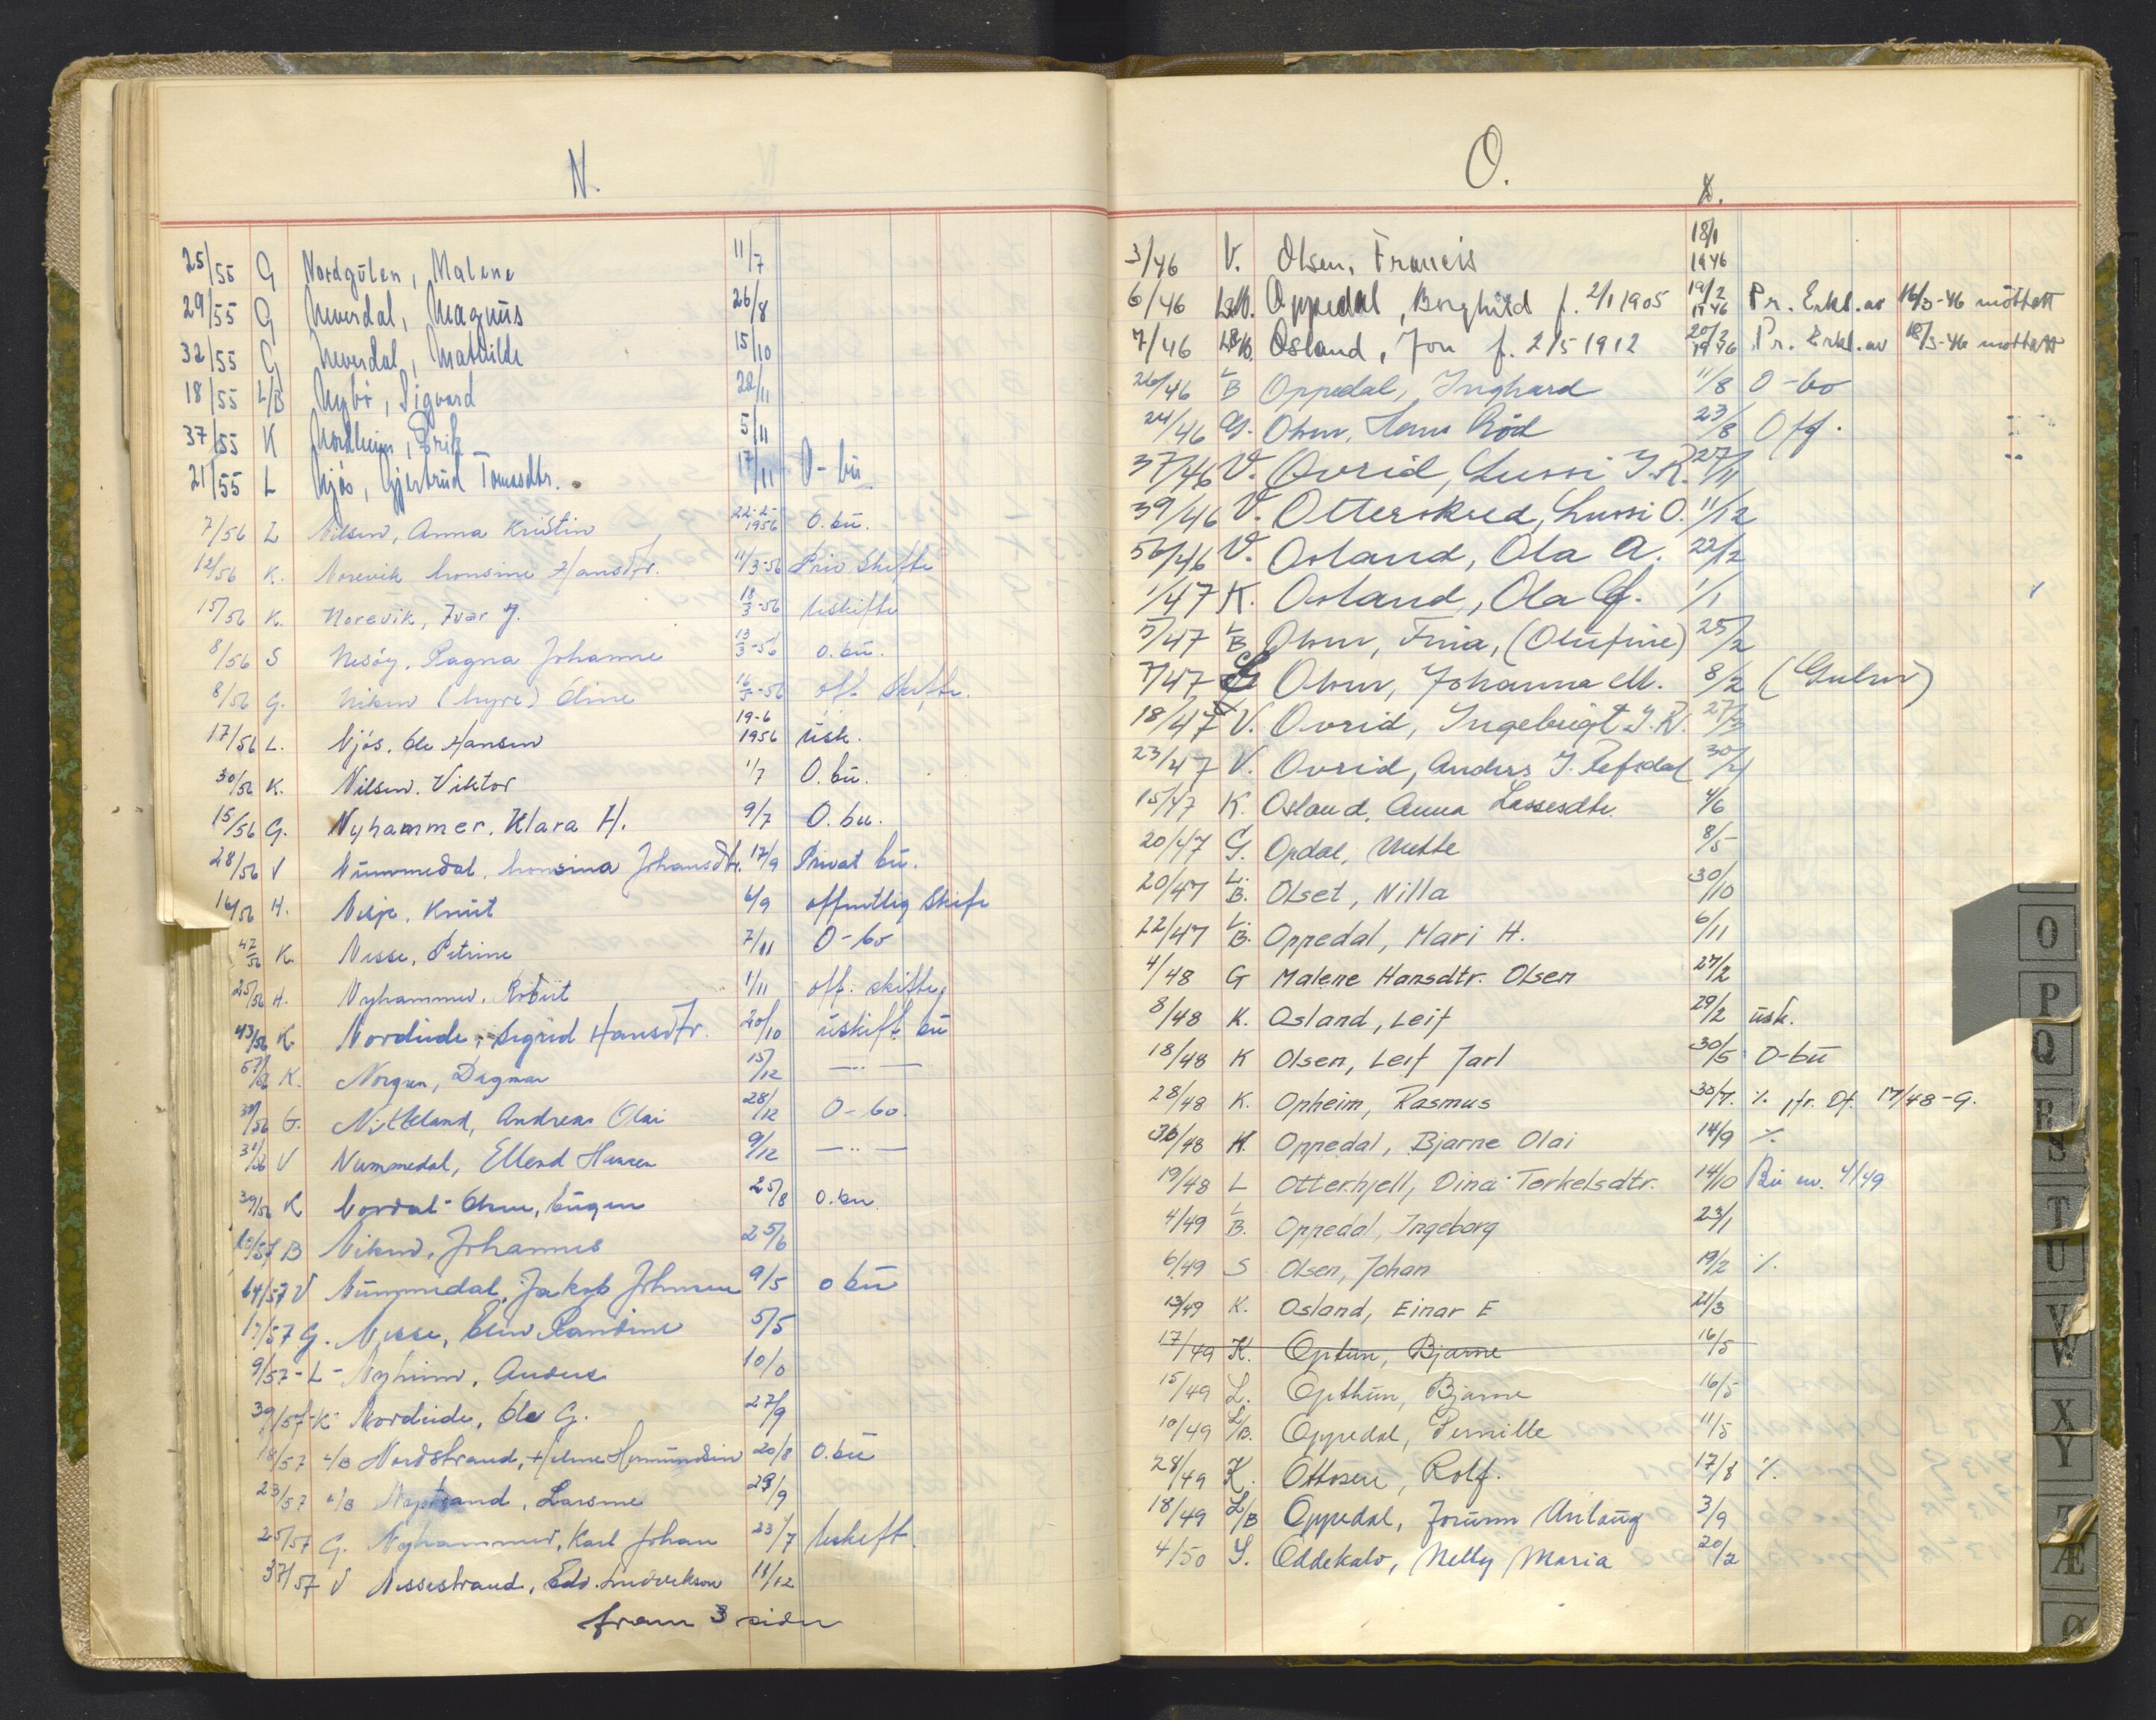 N.
25/55 G Nordgulen, Malene 11/7
29/55 G Neverdal, Magnus 26/8
32/55 G Neverdal, Mathilde 15/10
18/55 L/B Nybø, Sigvard 22/11
37/55 K Nordheim, Erik 5/11
21/55 L Njøs, Gjertrud Tomasdtr. 17/11 O-bu
7/56 L Nilsen, Anna Kristin 22-2-1956 O.bu.
12/56 K. Norevik Monsine Hansdtr. 11/3-56 Priv Skifte
15/56 K. Norevik, Ivar J. 18/3-56 Uskifte
8/56 S Nesøy, Ragna Johanne 13/3-56 O.bu.
8/56 G. Niksen (Myre) Oline 16/5-56 off. Skifte.
17/56 L. Njøs, Ole Hansen 19-6 1956 usk.
30/56 K. Nilsen, Viktor 1/7 O.bu.
15/56 G. Nyhammer, Klara H. 9/7 O.bu.
28/56 V Nummedal, Monsina Johansdtr. 17/9 Privat bu.
16/56 H. Nesje, Knut 6/9 offentlig skifte
47/56 K. Nesse, Petrine 7/11 O-bo
25/56 H. Nyhammer, Robert 1/11 off. skifte
43/56 K. Nordeide, Sigrid Hansdtr. 20/10 uskift. bu
K. Norgren, Dagmar 15/12 — ·· —
G. Nitteland, Andreas Olai 28/12 O-bo.
V Nummedal, Ellend Hansen 9/12 — ·· —
39/56 K Nordal-Olsen, Eugen 25/8 O.bu.
10/57 B Niksen, Johannes 25/6
14/57 V Nummedal, Jakob Johnsen 9/5 o bu
17/57 G. Nesse, Elen Randine 5/5
9/57 - L - Nyheim, Anders 10/0
39/57 - K - Nordeide, Ole G. 27/9
18/57 L/B Nordstrand, Helene Hermundsin 20/8 O.bu
23/57 L/B Nystrand, Larsine 29/9
25/57 G. Nyhammer, Karl Johan 23/7 Uskift.
37/57 V Nessestrand, Edv. Andreksen 11/12
fram 3 sider
O.
D.
3/46 V. Olsen, Francis 18/1 1946
6/46 L&B. Oppedal, Borghild f. 2/1 1905 19/2 1946 Pr. Erkl. av 16/3-46 mottatt
7/46 L&B. Osland, Jon f. 2/5 1912 20/2 1946 Pr. Erkl. av 18/3-46 mottatt
26/46 L B Oppedal, Inghard 11/8 O-bo
24/46 G. Olsen, Hans Röd 23/8 Off.
37/46 V. Ovrid, Lussi J.R. 27/11
39/46 V. Otterskred, Lussi O. 11/12
56/46 V. Osland, Ola A. 22/12
1/47 K. Osland, Ola G. 1/1
5/47 L B Olsen, Fina, (Olufine) 25/2
7/47 G Olsen, Johanna M. 8/2 (Gulen)
18/47 V. Ovrid, Ingebrigt J.R. 27/3
23/47 V. Ovrid, Anders J. Refsdal 30/4
15/47 K. Osland, Anna Lassesdtr. 4/6
20/47 G. Opdal, Mette 8/5
20/47 L. B. Olset, Nilla 30/10
22/47 L B. Oppedal, Mari H. 6/11
4/48 G Malene Hansdtr. Olsen 27/2
8/48 K. Osland, Leif 29/2 usk.
18/48 K Olsen, Leif Jarl 30/5 O-bu
28/48 K. Opheim, Rasmus 30/7. ٪. jfr. Df. 17/48-G.
36/48 K Oppedal, Bjarne Olai 14/9 ٪.
19/48 L Otterhjell, Dina Torkelsdtr. 14/10 Bu nr. 4/49
4/49 L B. Oppedal, Ingeborg 23/1
6/49 S Olsen, Johan 19/2 ٪.
13/49 K. Osland, Einar E 21/3
17/49 K. Optun, Bjarne 16/5
15/49 L. Opthun, Bjarne 16/5
10/49 L/B. Oppedal, Pernille 11/5
28/49 K. Ottosen, Rolf. 17/8 ٪.
18/49 L/B Oppedal, Jorunn Anlaug 3/9
4/50 S. Oddekalv, Nelly Maria 20/2
O
P
Q
R
S
T
U
V
W
X
Y
Z
Æ
Ø